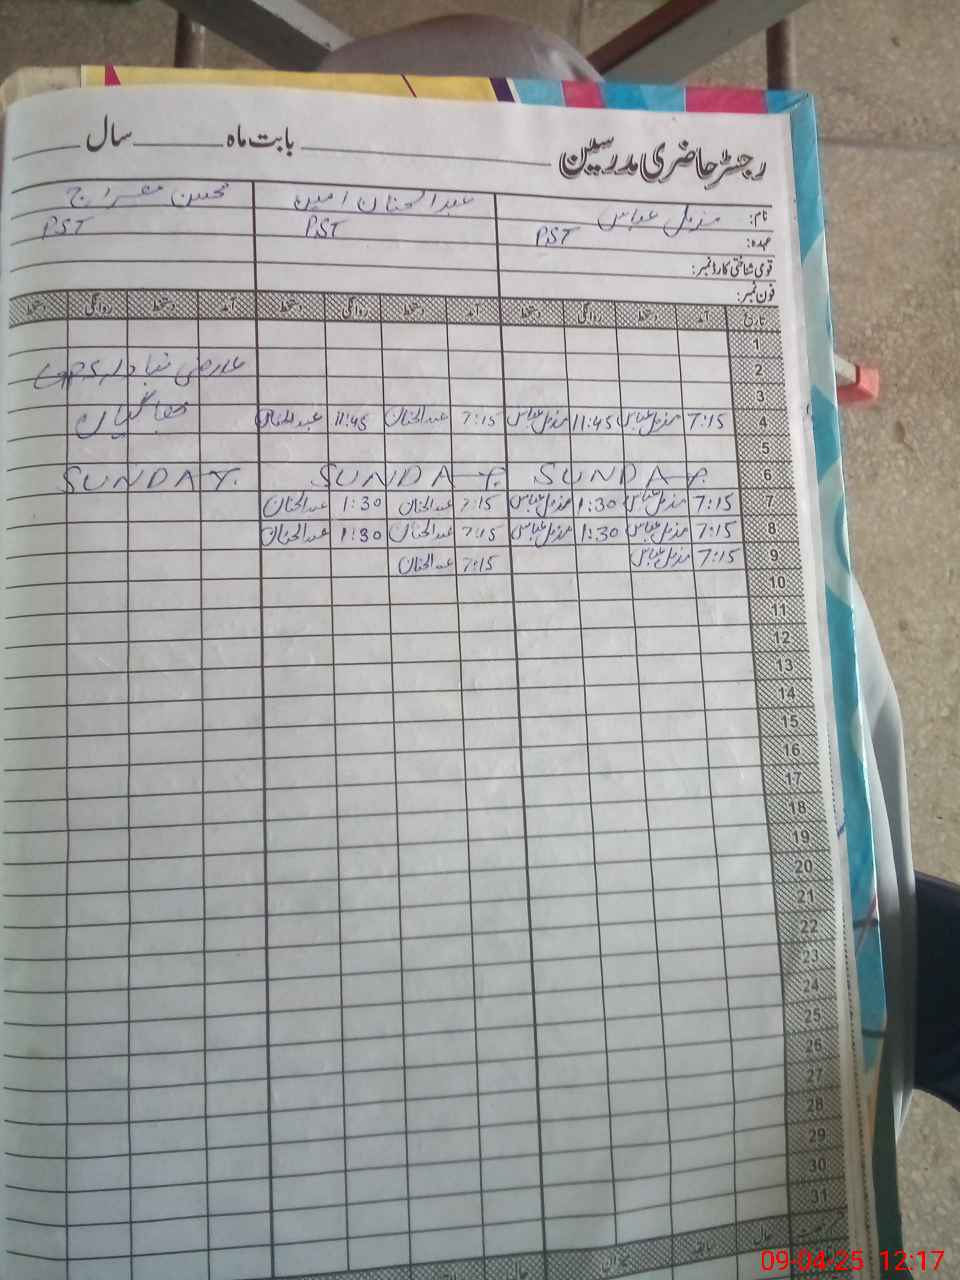 رجسٹر حاضری مدرسین ________ بابت ماہ ________ سال ________
نام: مزمل عباس عبدالحنان امین محسن معراج
عہدہ: PST PST PST
قومی شناختی کارڈ نمبر:
فون نمبر:
تاریخ آمد دستخط روانگی دستخط آمد دستخط روانگی دستخط آمد دستخط روانگی دستخط
1
2 عارضی تبادلہ GPS
3
4 7:15 مزمل عباس 11:45 مزمل عباس 7:15 عبدالحنان 11:45 عبدالحنان
5
6 SUNDAY. SUNDAY. SUNDAY.
7 7:15 مزمل عباس 1:30 مزمل عباس 7:15 عبدالحنان 1:30 عبدالحنان
8 7:15 مزمل عباس 1:30 مزمل عباس 7:15 عبدالحنان 1:30 عبدالحنان
9 7:15 مزمل عباس 7:15 عبدالحنان
10
11
12
13
14
15
16
17
18
19
20
21
22
23
24
25
26
27
28
29
30
31
رخصت حال سابقہ میزان حال
09-04-25 12:17